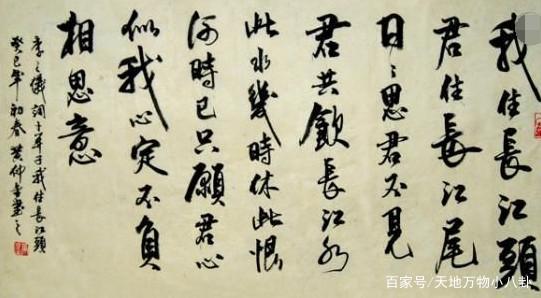 我住長江頭
君住長江尾
日〻思君不見
君共飲長江水
此水幾時休此恨
何時已只願君心
似我心定不負
相思意
李之儀詞卜算子我住長江頭
癸巳年初春黄仲書之
百家号/天地万物小八卦